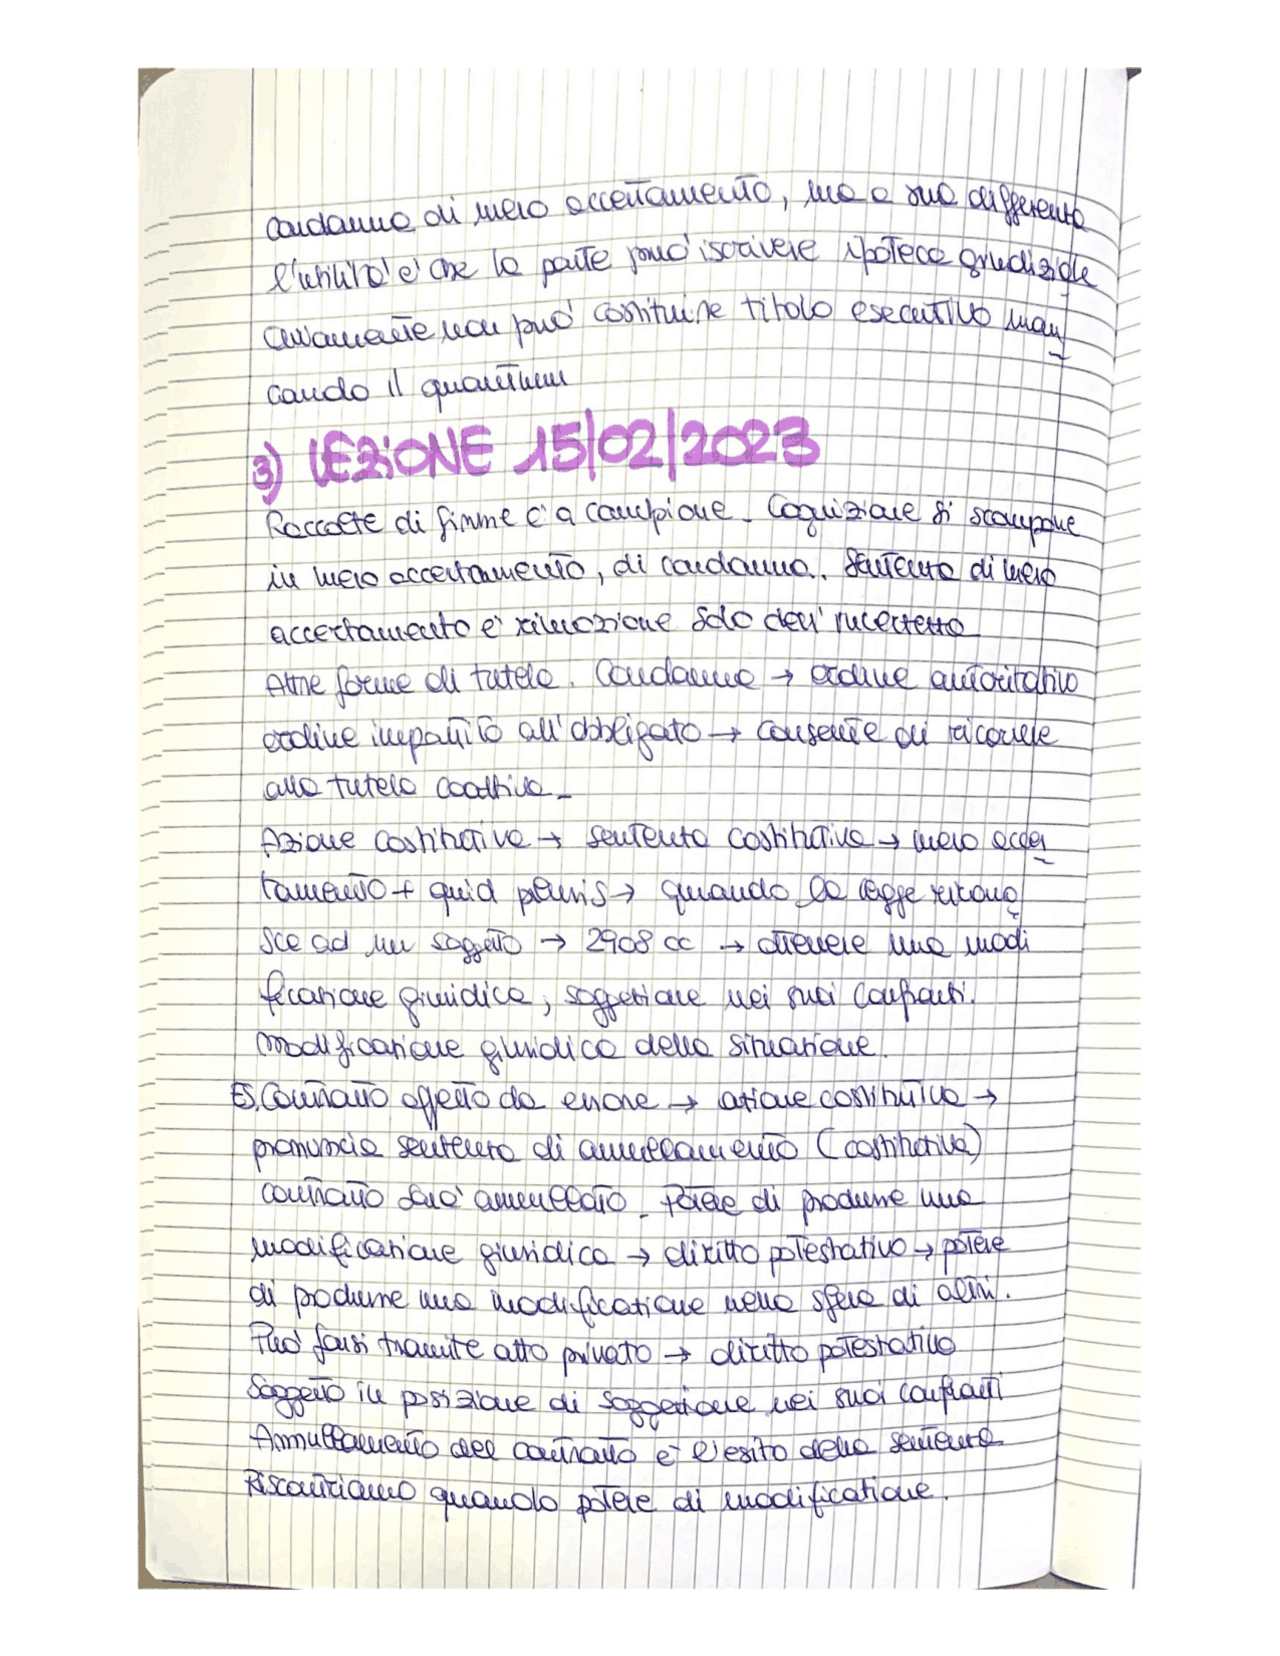 condanna di mero accertamento, ma a sua differenza
l'utilità è che la parte può iscrivere ipoteca giudiziale
ovviamente non può costituire titolo esecutivo man
cando il quantum
3) LEZIONE 15/02/2023
Raccolte di firme è a campione. Cognizione si scompone
in mero accertamento, di condanna. Sentenza di mero
accertamento è rimozione solo dell'incertezza
Altre forme di tutela. Condanna → ordine autoritativo
ordine impartito all'obbligato → consente di ricorrere
alla tutela coattiva_
Azione costitutiva → sentenza costitutiva → mero accer
tamento + quid pluris → quando la legge ricono
sce ad un soggetto → 2908 cc → ottenere una modi
ficazione giuridica, soggezione nei suoi confronti.
modificazione giuridica della situazione.
ES. Contratto affetto da errore → azione costitutiva →
pronuncia sentenza di annullamento (costitutiva)
contratto sarà annullato_ Potere di produrre una
modificazione giuridica → diritto potestativo → potere
di produrre una modificazione nella sfera di altri.
Può farsi tramite atto privato → diritto potestativo
Soggetto in posizione di soggezione nei suoi confronti
Annullamento del contratto è l'esito della sentenza
Riscontriamo quando potere di modificazione.